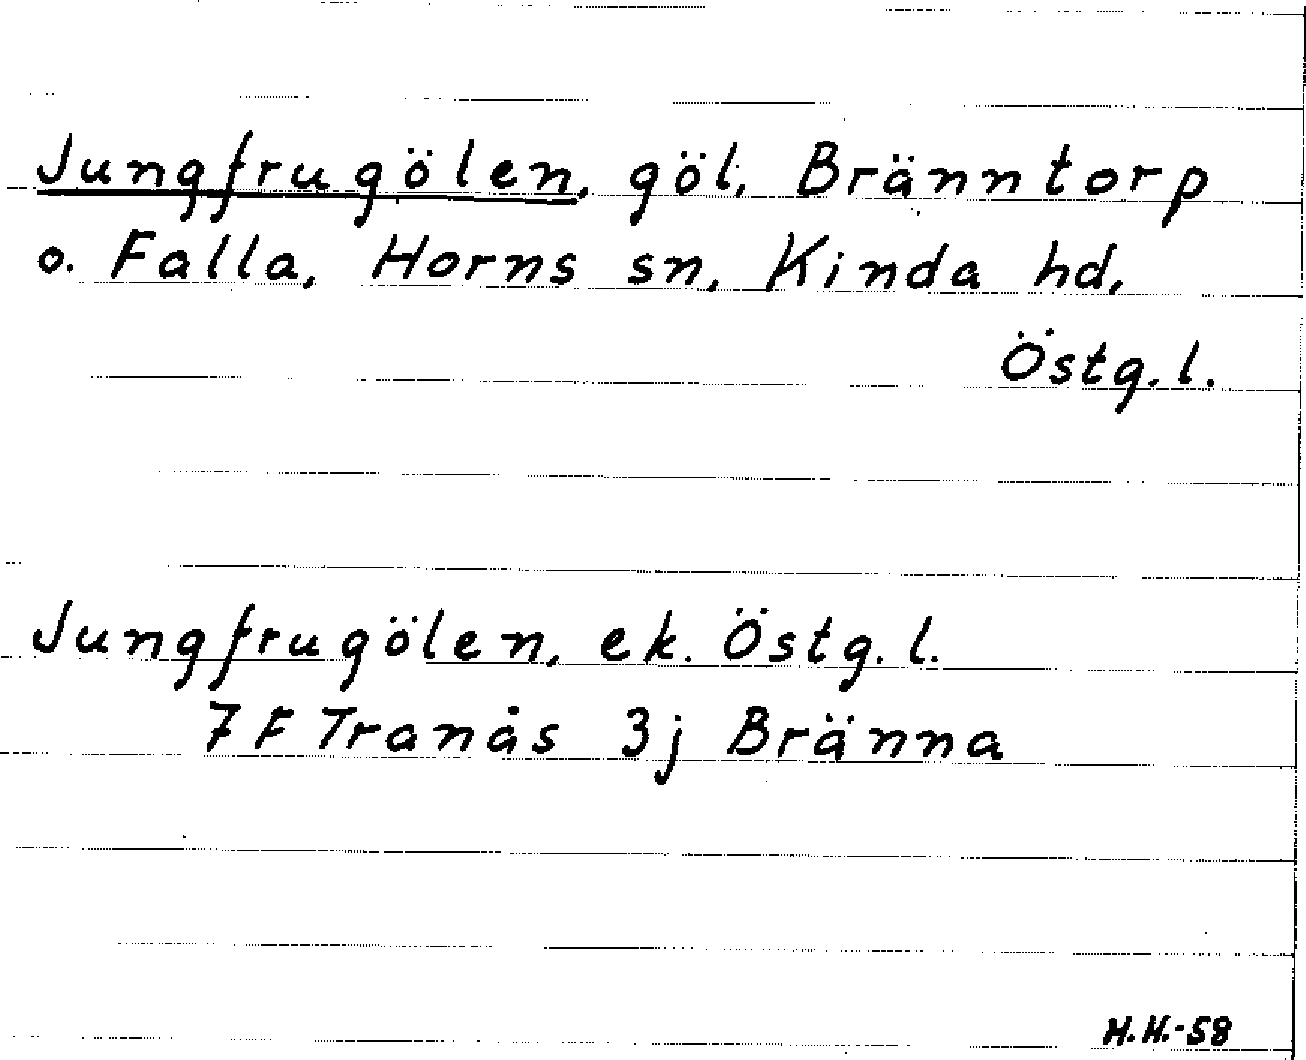 Jungfrugölen, göl, Bränntorp
o. Falla, Horns sn, Kinda hd,
Östg. l.
Jungfrugölen, ek. Östg. l.
7 F Tranås 3j Bränna
H.H.-58